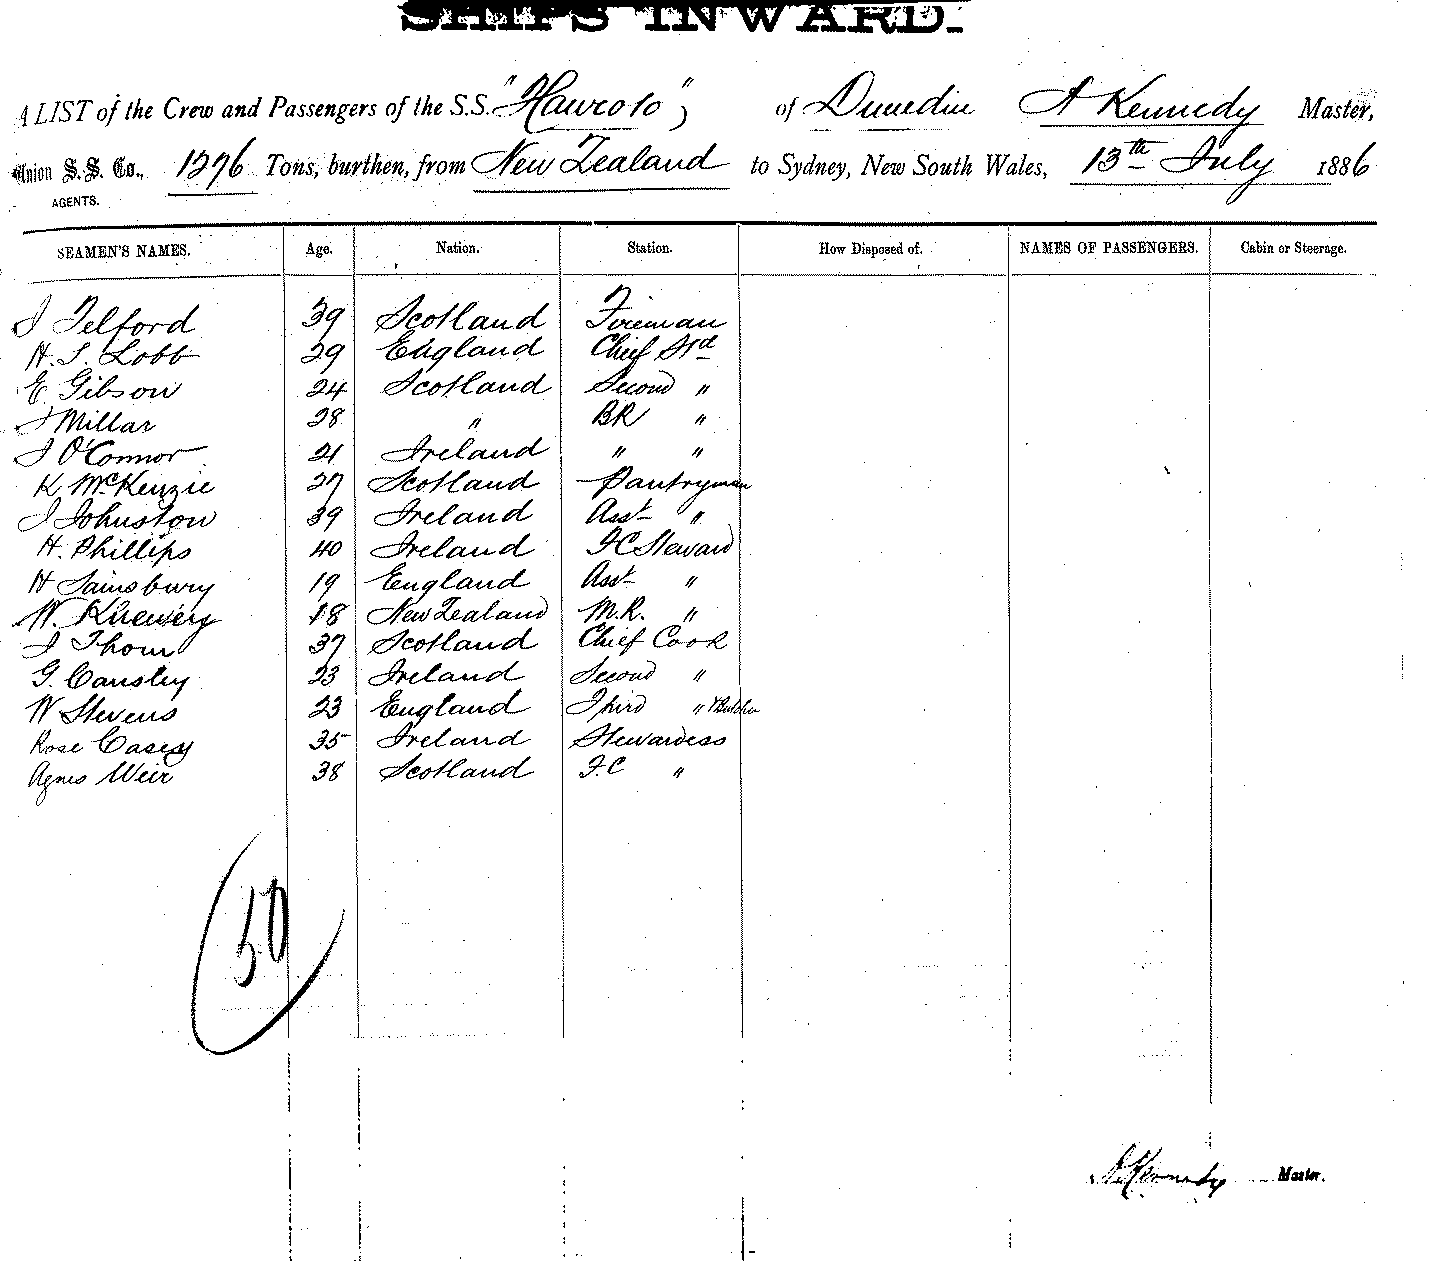 SHIPS INWARD.
A LIST of the Crew and Passengers of the S.S. "Hauroto", of Dunedin A Kennedy Master,
Union S. S. Co., 1276 Tons, burthen, from New Zealand to Sydney, New South Wales, 13th July 1886
AGENTS.
SEAMEN'S NAMES. Age. Nation. Station. How Disposed of. NAMES OF PASSENGERS. Cabin or Steerage.
J Telford 39 Scotland Fireman
H. S. Lobb 29 England Chief Std
E Gibson 24 Scotland Second "
J Millar 28 " BR "
J O'Connor 21 Ireland " "
K McKenzie 27 Scotland Pantryman
J Johnston 39 Ireland Asst "
H. Phillips 40 Ireland F C Steward
H Sainsbury 19 England Asst "
W. 18 New Zealand M.R. "
J Thom 37 Scotland Chief Cook
G. Cansley 23 Ireland Second "
W Stevens 23 England Third " & Butcher
Rose Casey 35 Ireland Stewardess
Agnes Weir 38 Scotland F.C "
50
A Kennedy Master.